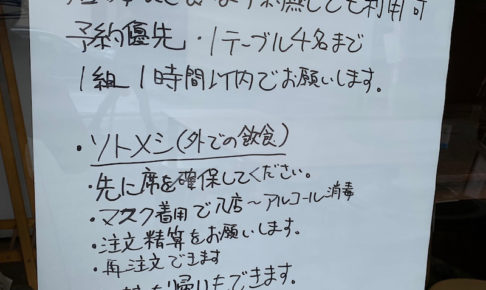 予約無しでも利用可
予約優先・1テーブル4名まで
1組1時間以内でお願いします。
・ソトメシ(外での飲食)
・先に席を確保してください。
・マスク着用で入店～アルコール消毒
・注文精算をお願いします。
・再注文できます
帰りもできます。